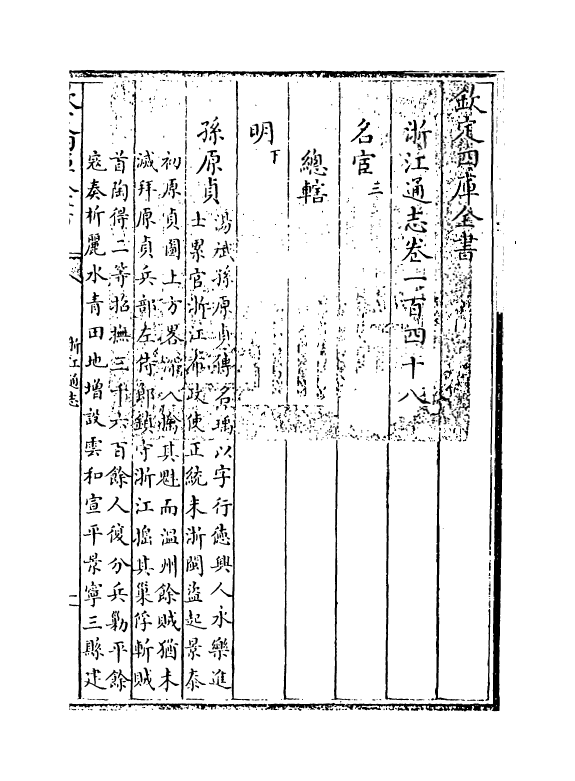 欽定四庫全書
浙江通志卷一百四十八
名宦三
總轄
明下
孫原貞
湯斌孫原貞傳名瑀以字行德興人永樂進
士累官浙江布政使正統末浙閩盜起景泰
初原貞圖上方畧入擒其魁而溫州餘賊猶未
滅拜原貞兵部左侍郎鎮守浙江搗其巢俘斬賊
首陶得二等招撫三千六百餘人復分兵勦平餘
寇奏析麗水青田地增設雲和宣平景寧三縣建
浙江通志